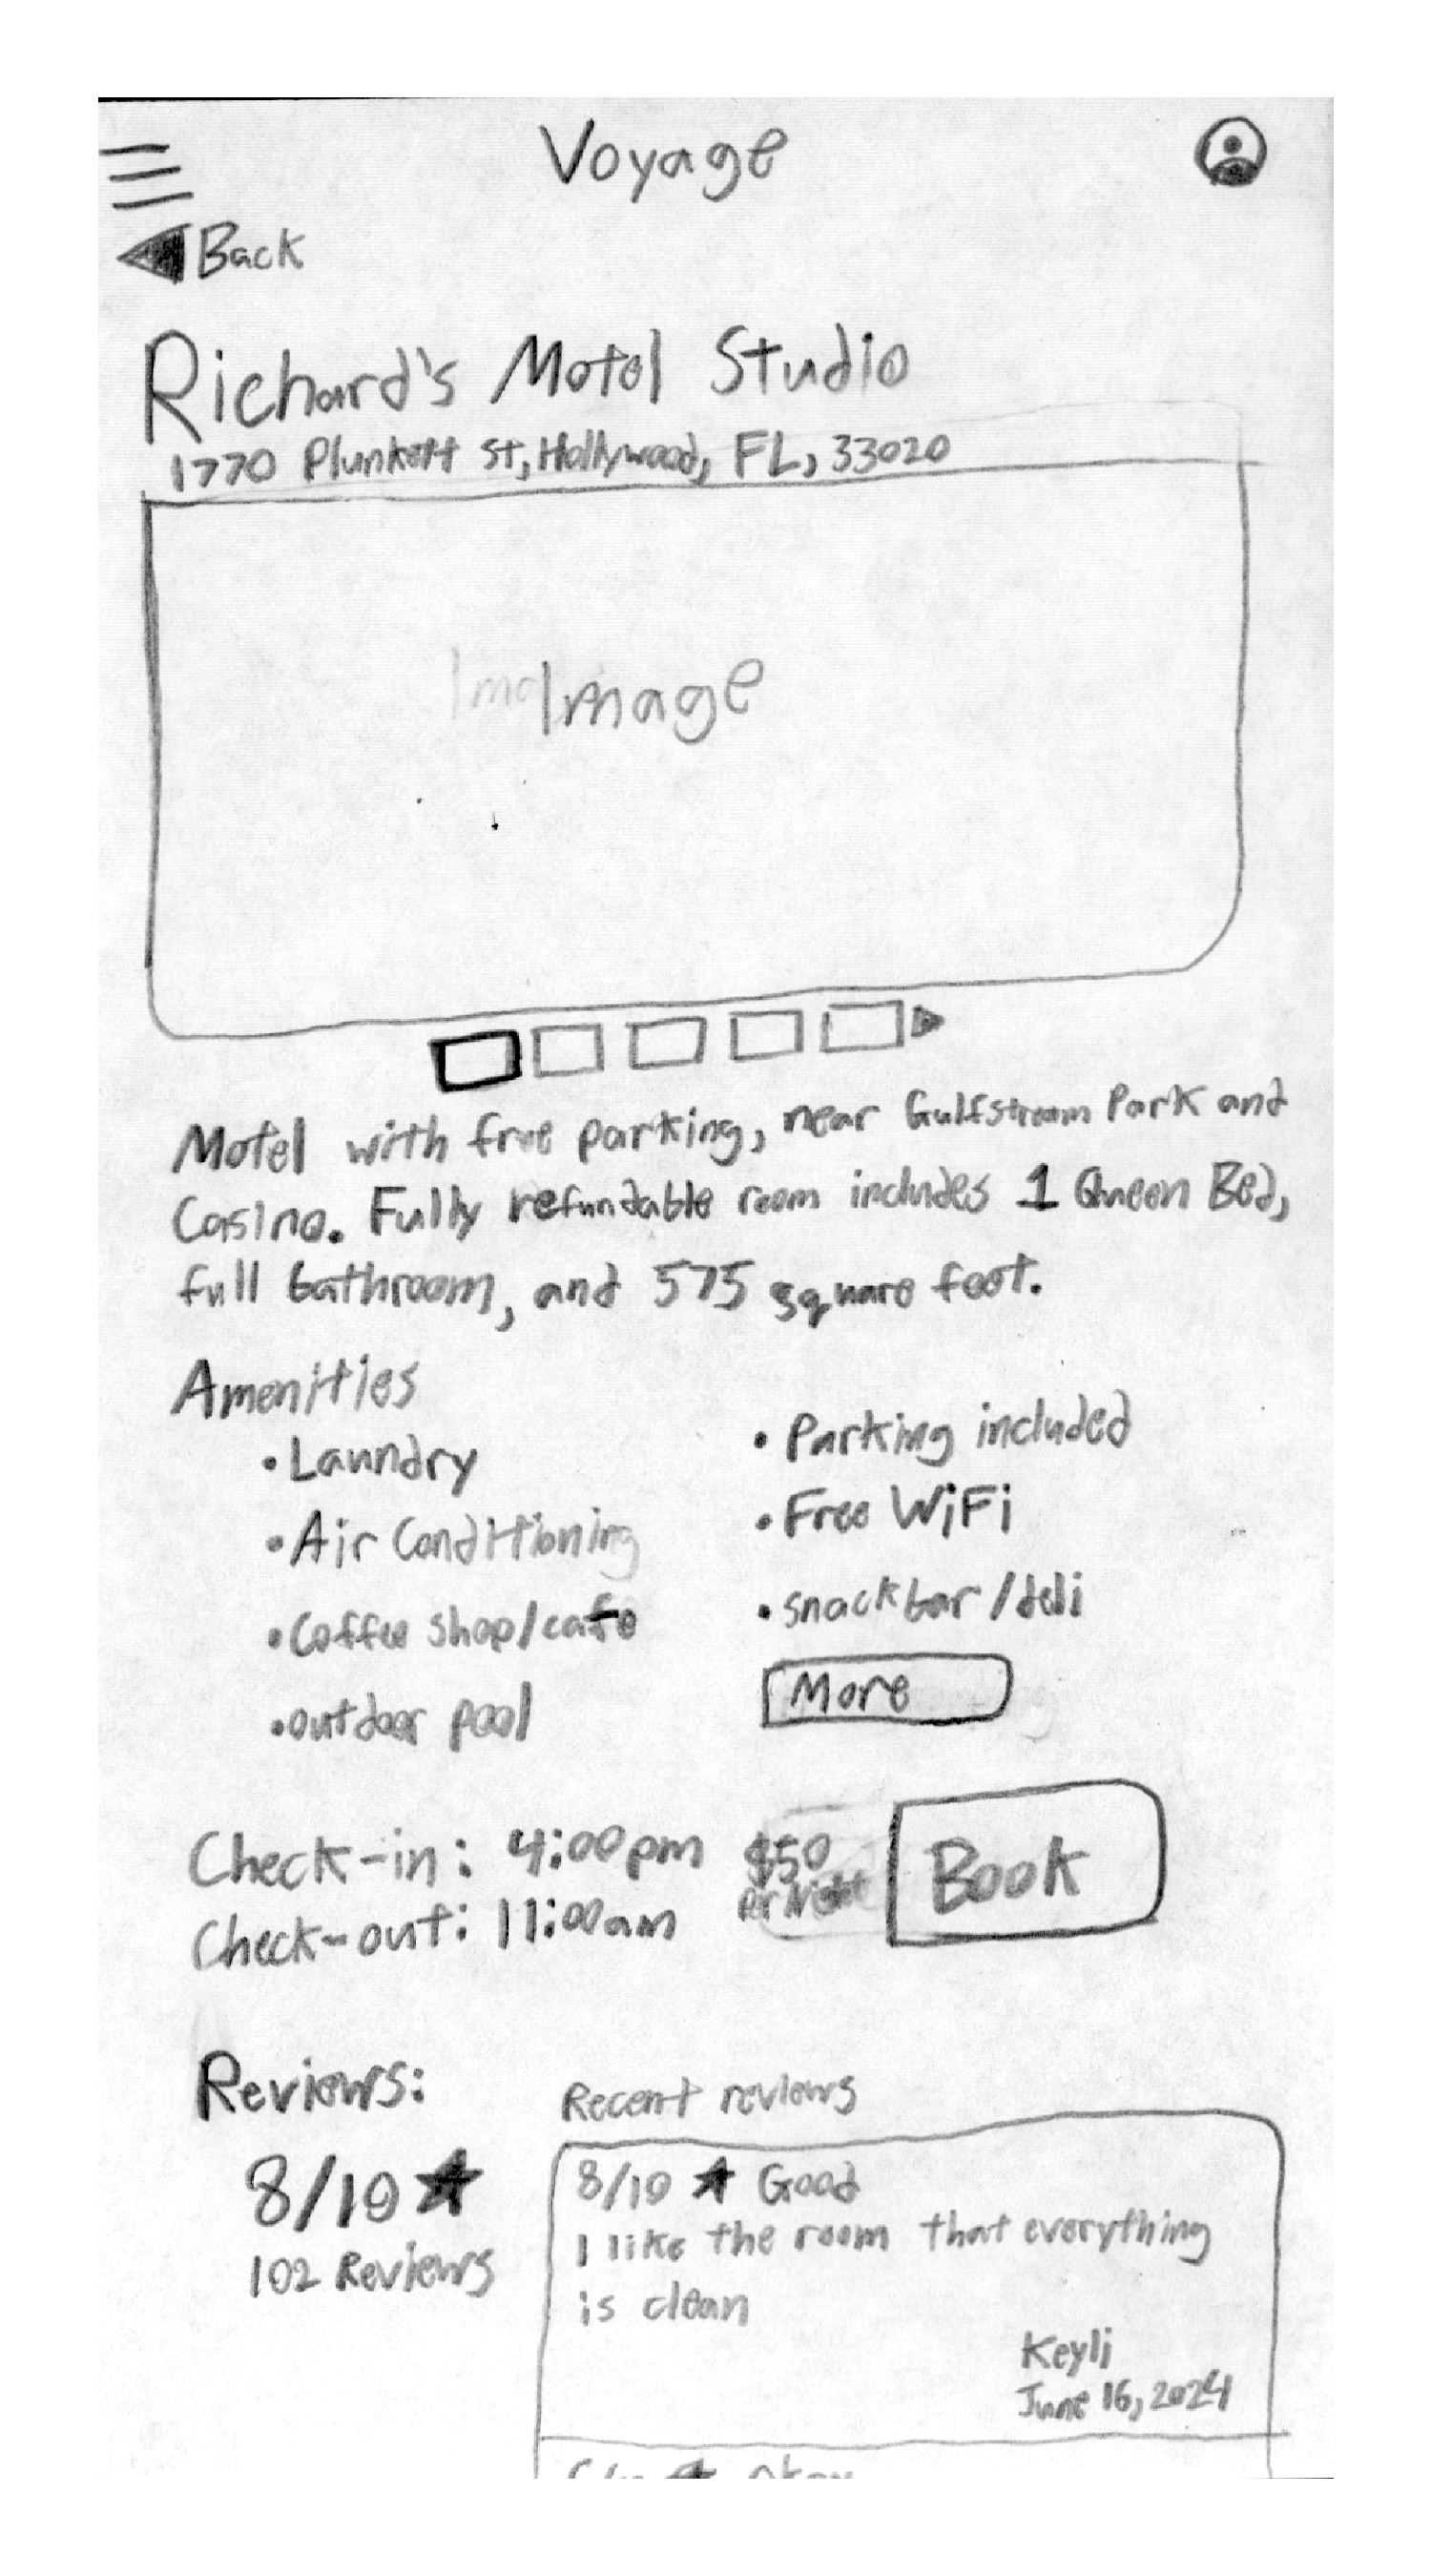 Voyage
Back
Richard's Motel Studio
1770 Plunkett St, Hollywood, FL, 33020
Image
Motel with free parking, near Gulfstream Park and
Casino. Fully refundable room includes 1 Queen Bed,
full bathroom, and 575 square feet.
Amenities
•Laundry
•Air Conditioning
•Coffee shop/cafe
•outdoor pool
•Parking included
•Free WiFi
•snackbar/deli
More
Check-in: 4:00pm
Check-out: 11:00am
$50
Per Night
Book
Reviews:
8/10 ★
102 Reviews
Recent reviews
8/10 ★ Good
I like the room that everything
is clean
Keyli
June 16, 2024